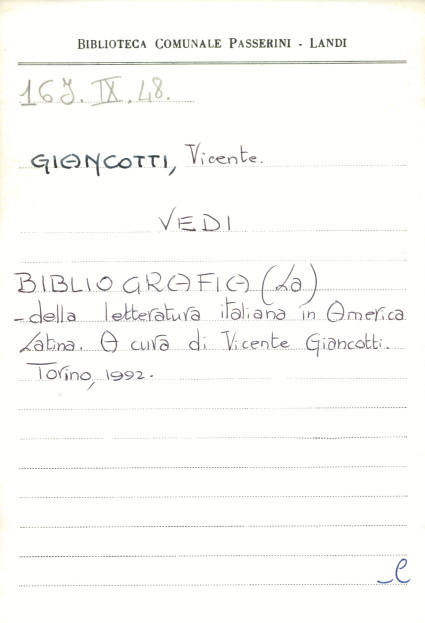 BIBLIOTECA COMUNALE PASSERINI - LANDI
16J. IX. 48.
GIANCOTTI, Vicente.
VEDI
BIBLIOGRAFIA (La)
-della letteratura italiana in America
Latina. A cura di Vicente Giancotti.
Torino, 1992.